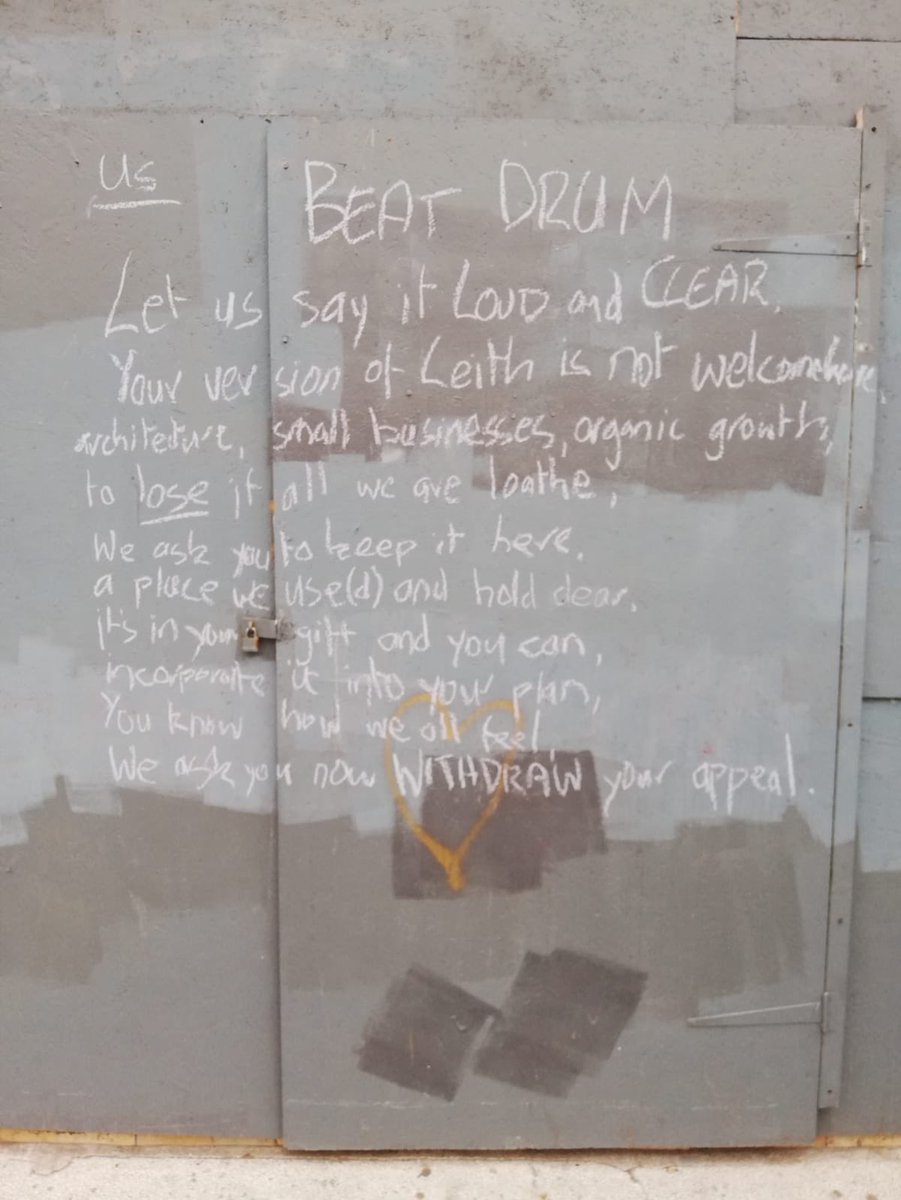 us BEAT DRUM
Let us say it LOUD and CLEAR,
Your version of Leith is not welcome here,
architecture, small businesses, organic growth,
to lose it all we are loathe,
We ask you to keep it here,
a place we use(d) and hold dear,
it's in your gift and you can,
incorporate it into your plan,
You know how we all feel,
We ask you now WITHDRAW your appeal.